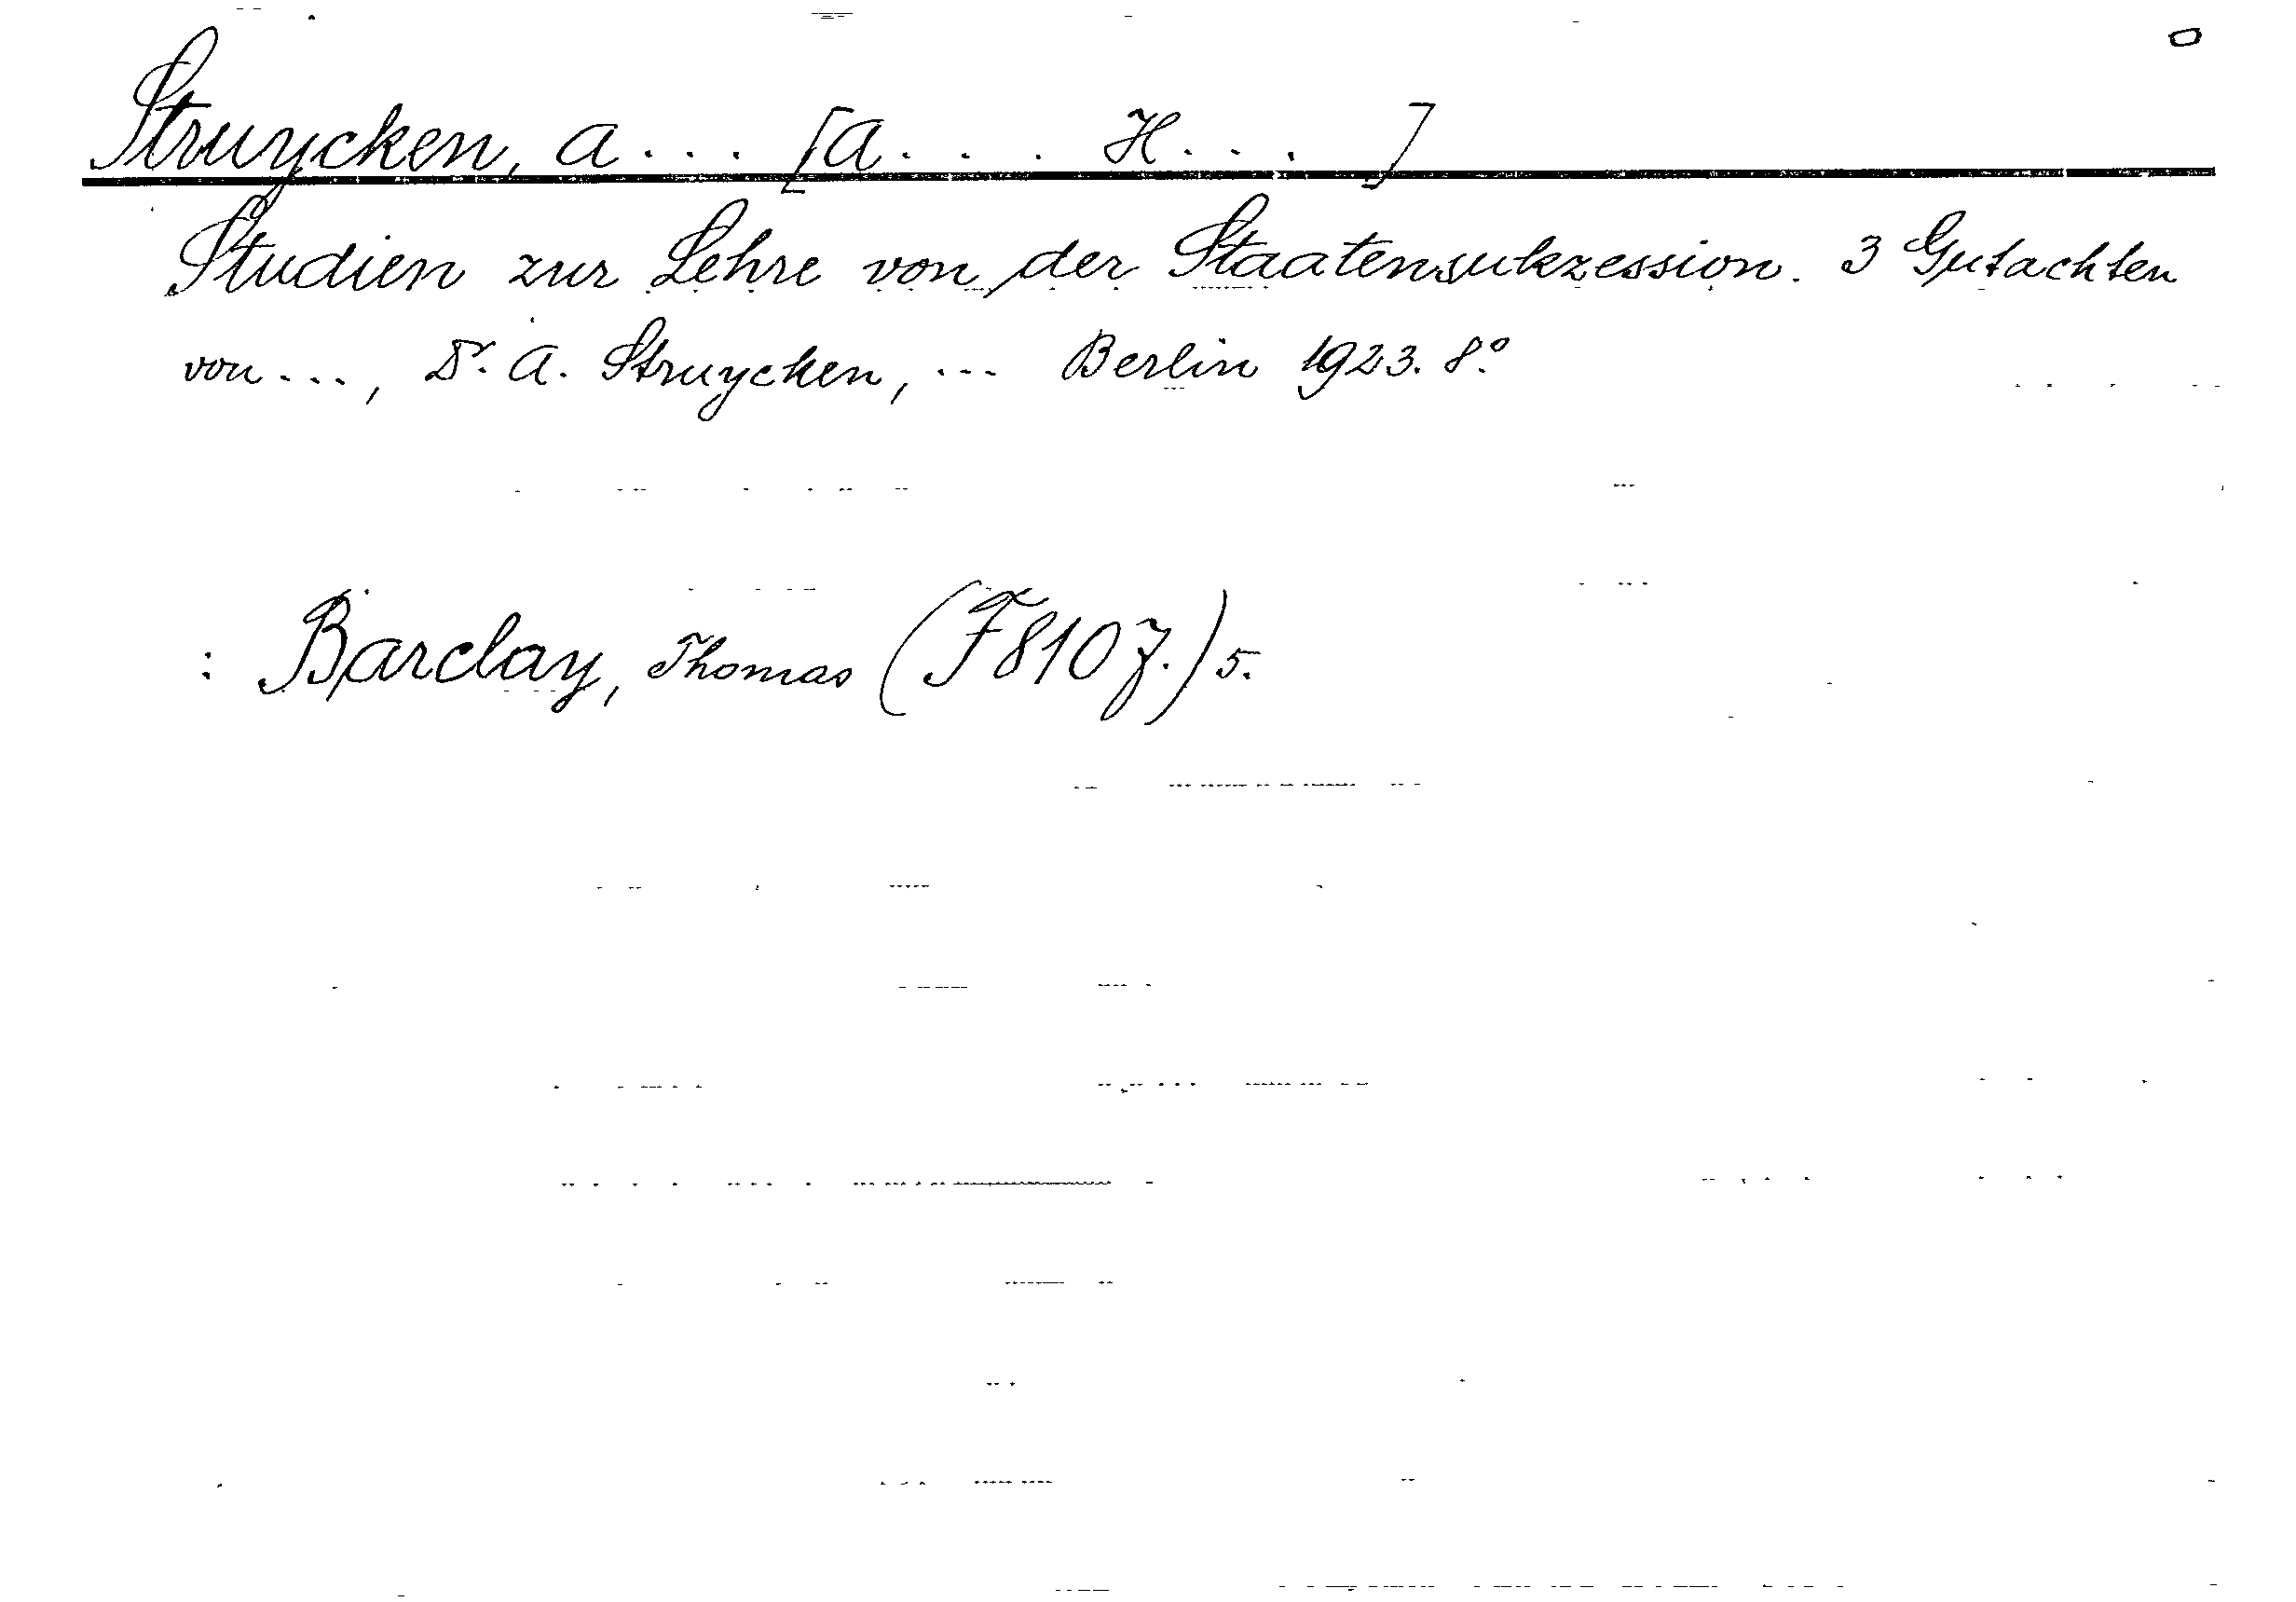 Struycken, A... [A... H...]
Studien zur Lehre von der Staatensukzession. 3 Gutachten
von..., Dr. A. Struycken,... Berlin 1923. 8.°
: Barclay, Thomas (F 810 J.) 5.